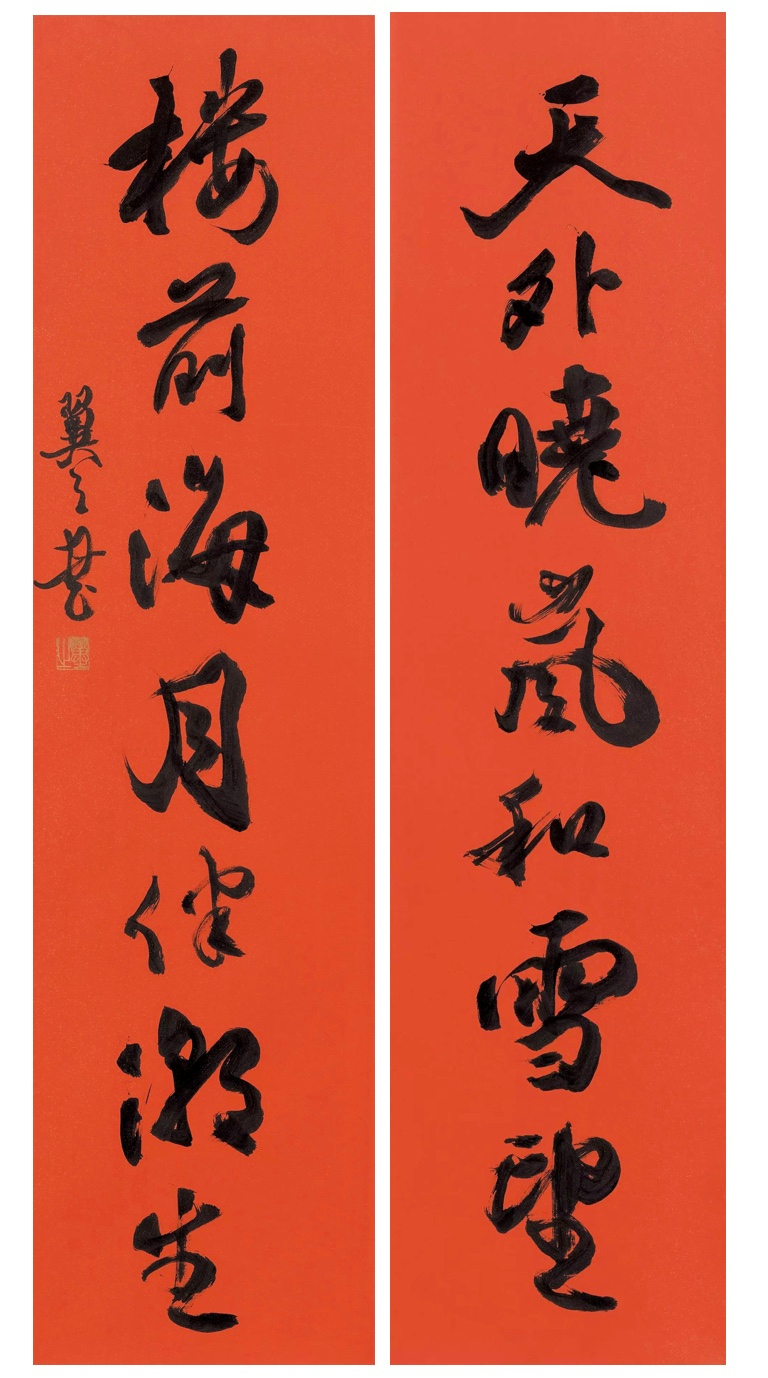 天外曉嵐和雪望
楼前海月伴潮生
翼之書